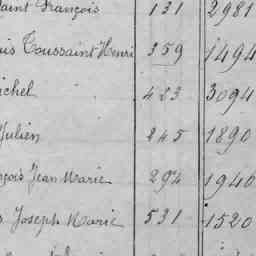 Saint François 131 2981
uis Toussaint Henri 359 1494
ichel 483 3094
Julien 245 1890
nçois Jean Marie 294 1940
s Joseph Marie 531 1520